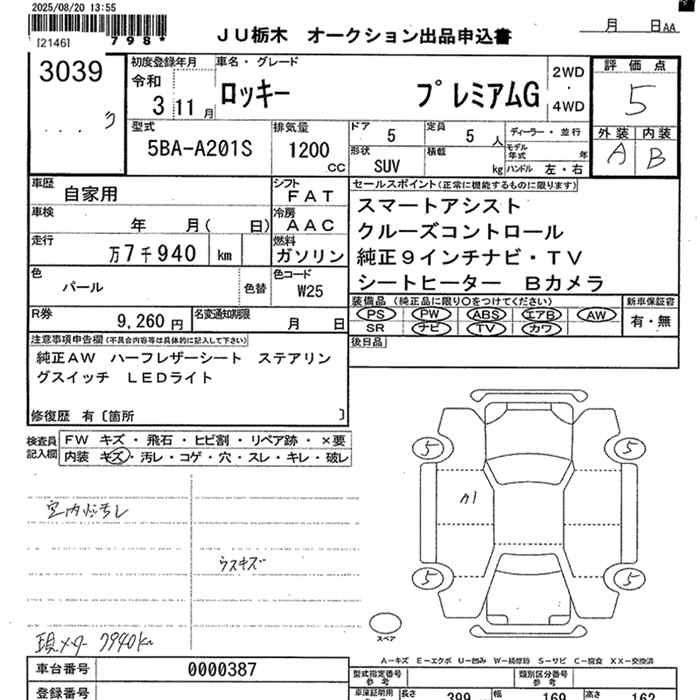 2025/08/20 13:55
[2146]
798*
JU栃木 オークション出品申込書
月 日AA
3039
初度登録年月
令和
3 11月
車名・グレード
ロッキー プレミアムG
2WD
・
4WD
評価点
5
外装 内装
A B
型式
5BA-A201S
排気量
1200
CC
ドア
5
定員
5 人
形状
SUV
積載
kg
ディーラー・並行
モデル年式 年
ハンドル 左・右
車歴
自家用
シフト
FAT
セールスポイント(正常に機能するものに限ります)
スマートアシスト
クルーズコントロール
純正9インチナビ・TV
シートヒーター Bカメラ
車検
年 月( 日)
冷房
AAC
走行
万7千940 km
燃料
ガソリン
色
パール
色替
色コード
W25
装備品 (純正品に限り○をつけてください)
PS PW ABS エアB AW
SR ナビ TV カワ
新車保証書
有・無
R券
9,260 円
名変通知期限
月 日
後日品
注意事項申告欄(不具合内容等は具体的に記入して下さい)
純正AW ハーフレザーシート ステアリン
グスイッチ LEDライト
修復歴 有〔箇所 〕
検査員記入欄
FW キズ・飛石・ヒビ割・リペア跡・×要
内装 キズ・汚レ・コゲ・穴・スレ・キレ・破レ
5 5
カ1
ウスキズ
5 5
現メーター 7940km
スペア
A-キズ E-エクボ U-凹み W-補修跡 S-サビ C-腐食 XX-交換済
車台番号
0000387
登録番号
型式指定番号
参考
類別区分番号
参考
車庫証明用
長さ
399
幅
169
高さ
162